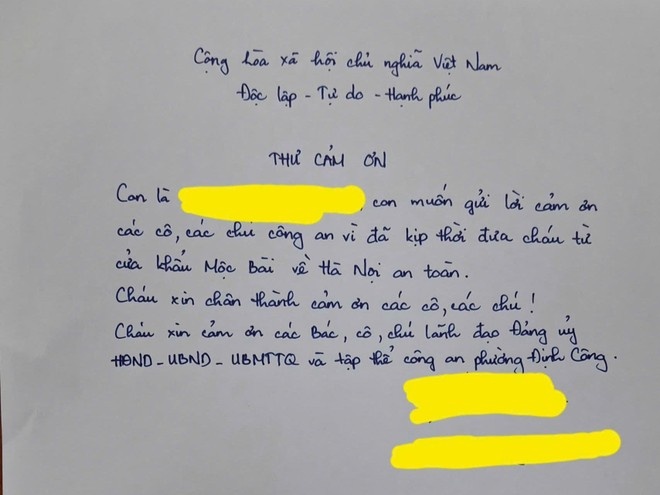 Cộng hòa xã hội chủ nghĩa Việt Nam
Độc lập - Tự do - Hạnh phúc
THƯ CẢM ƠN
Con là , con muốn gửi lời cảm ơn
các cô, các chú công an vì đã kịp thời đưa cháu từ
cửa khẩu Mộc Bài về Hà Nội an toàn.
Cháu xin chân thành cảm ơn các cô, các chú!
Cháu xin cảm ơn các Bác, cô, chú lãnh đạo Đảng ủy
HĐND - UBND - UBMTTQ và tập thể công an phường Định Công.